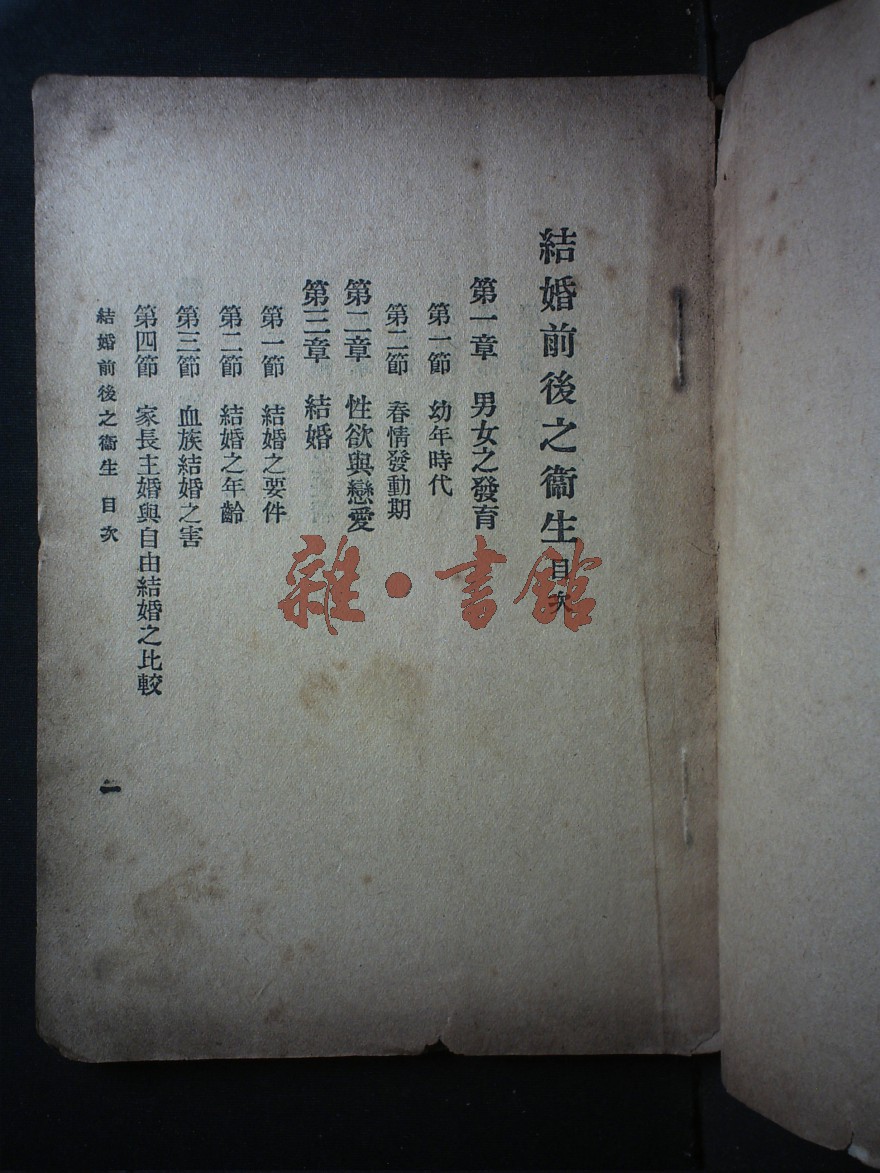 結婚前後之衞生目次
第一章　男女之發育
第一節　幼年時代
第二節　春情發動期
第二章　性欲與戀愛
第三章　結婚
第一節　結婚之要件
第二節　結婚之年齡
第三節　血族結婚之害
第四節　家長主婚與自由結婚之比較
結婚前後之衞生　目次
二
雜·書館